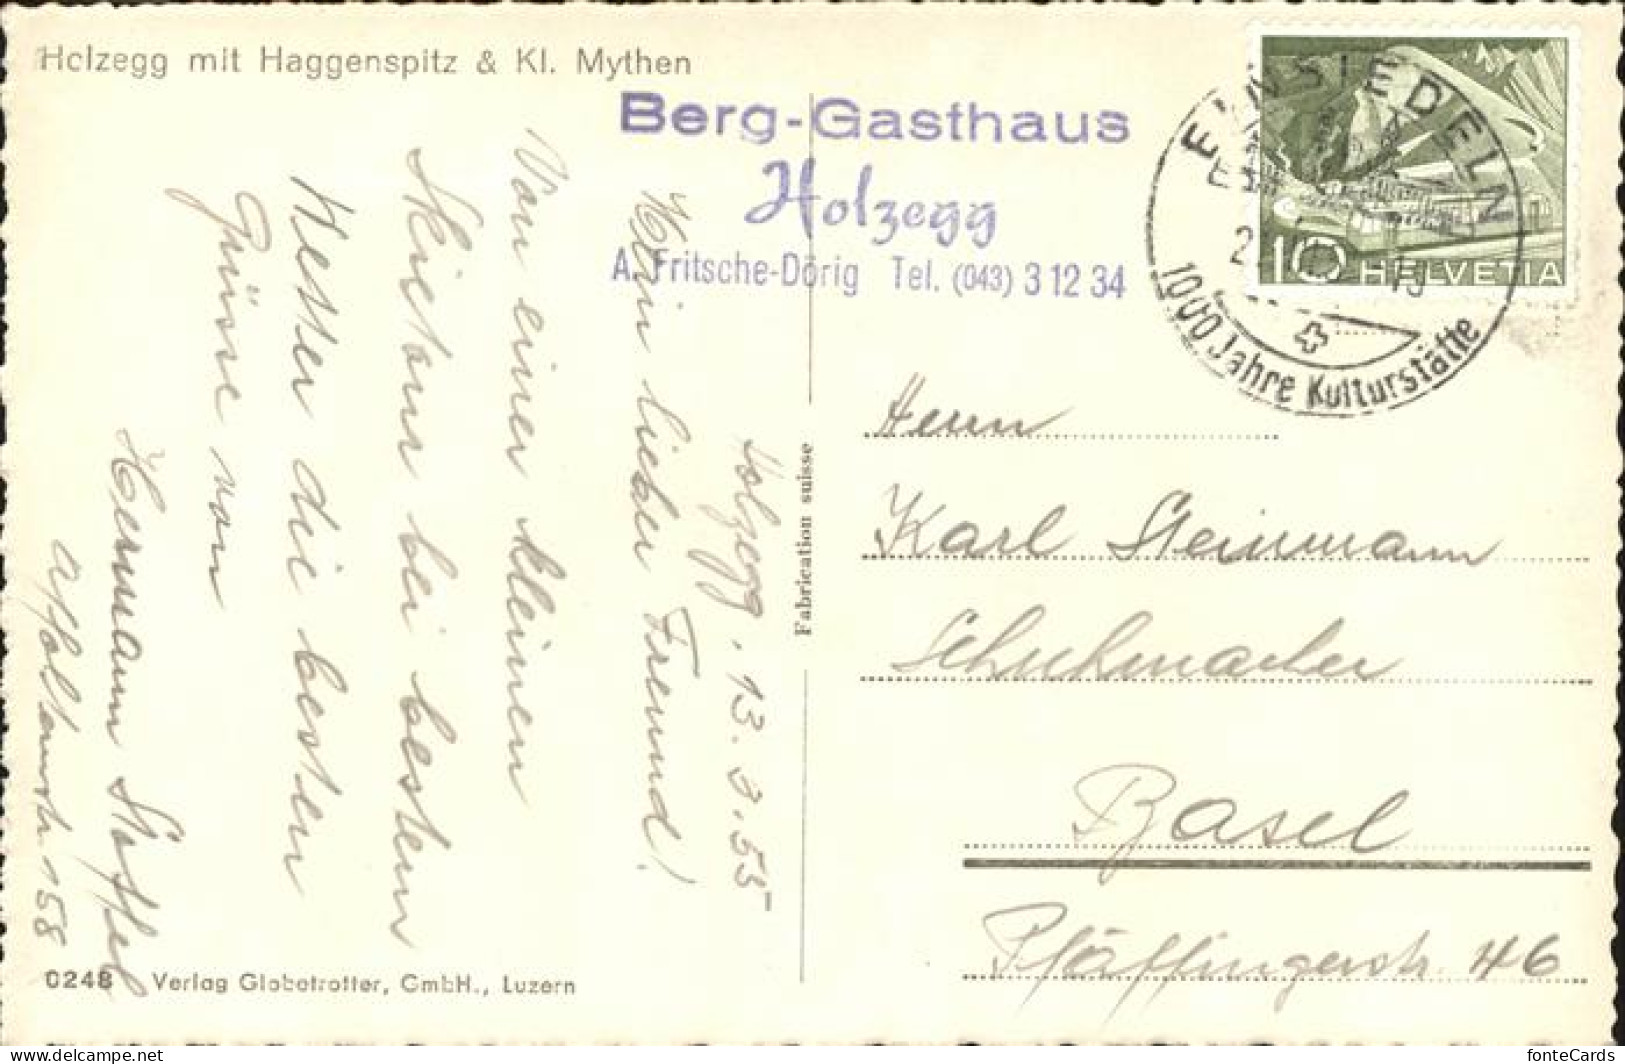 Holzegg mit Haggenspitz & Kl. Mythen
Berg-Gasthaus
Holzegg
A. Fritsche-Dörig Tel. (043) 3 12 34
EINSIEDELN
1000 Jahre Kulturstätte
10 HELVETIA
Holzegg, 13.3.55
Mein lieber Freund!
Von einer kleinen
Skietour bei bestem
Wetter die besten
Grüsse von
Hermann Stoffel
158
Fabrication suisse
Herrn
Karl Steinmann
Schuhmacher
Basel
Pfäffingerstr. 46
0248 Verlag Globetrotter, GmbH., Luzern
fonteCards